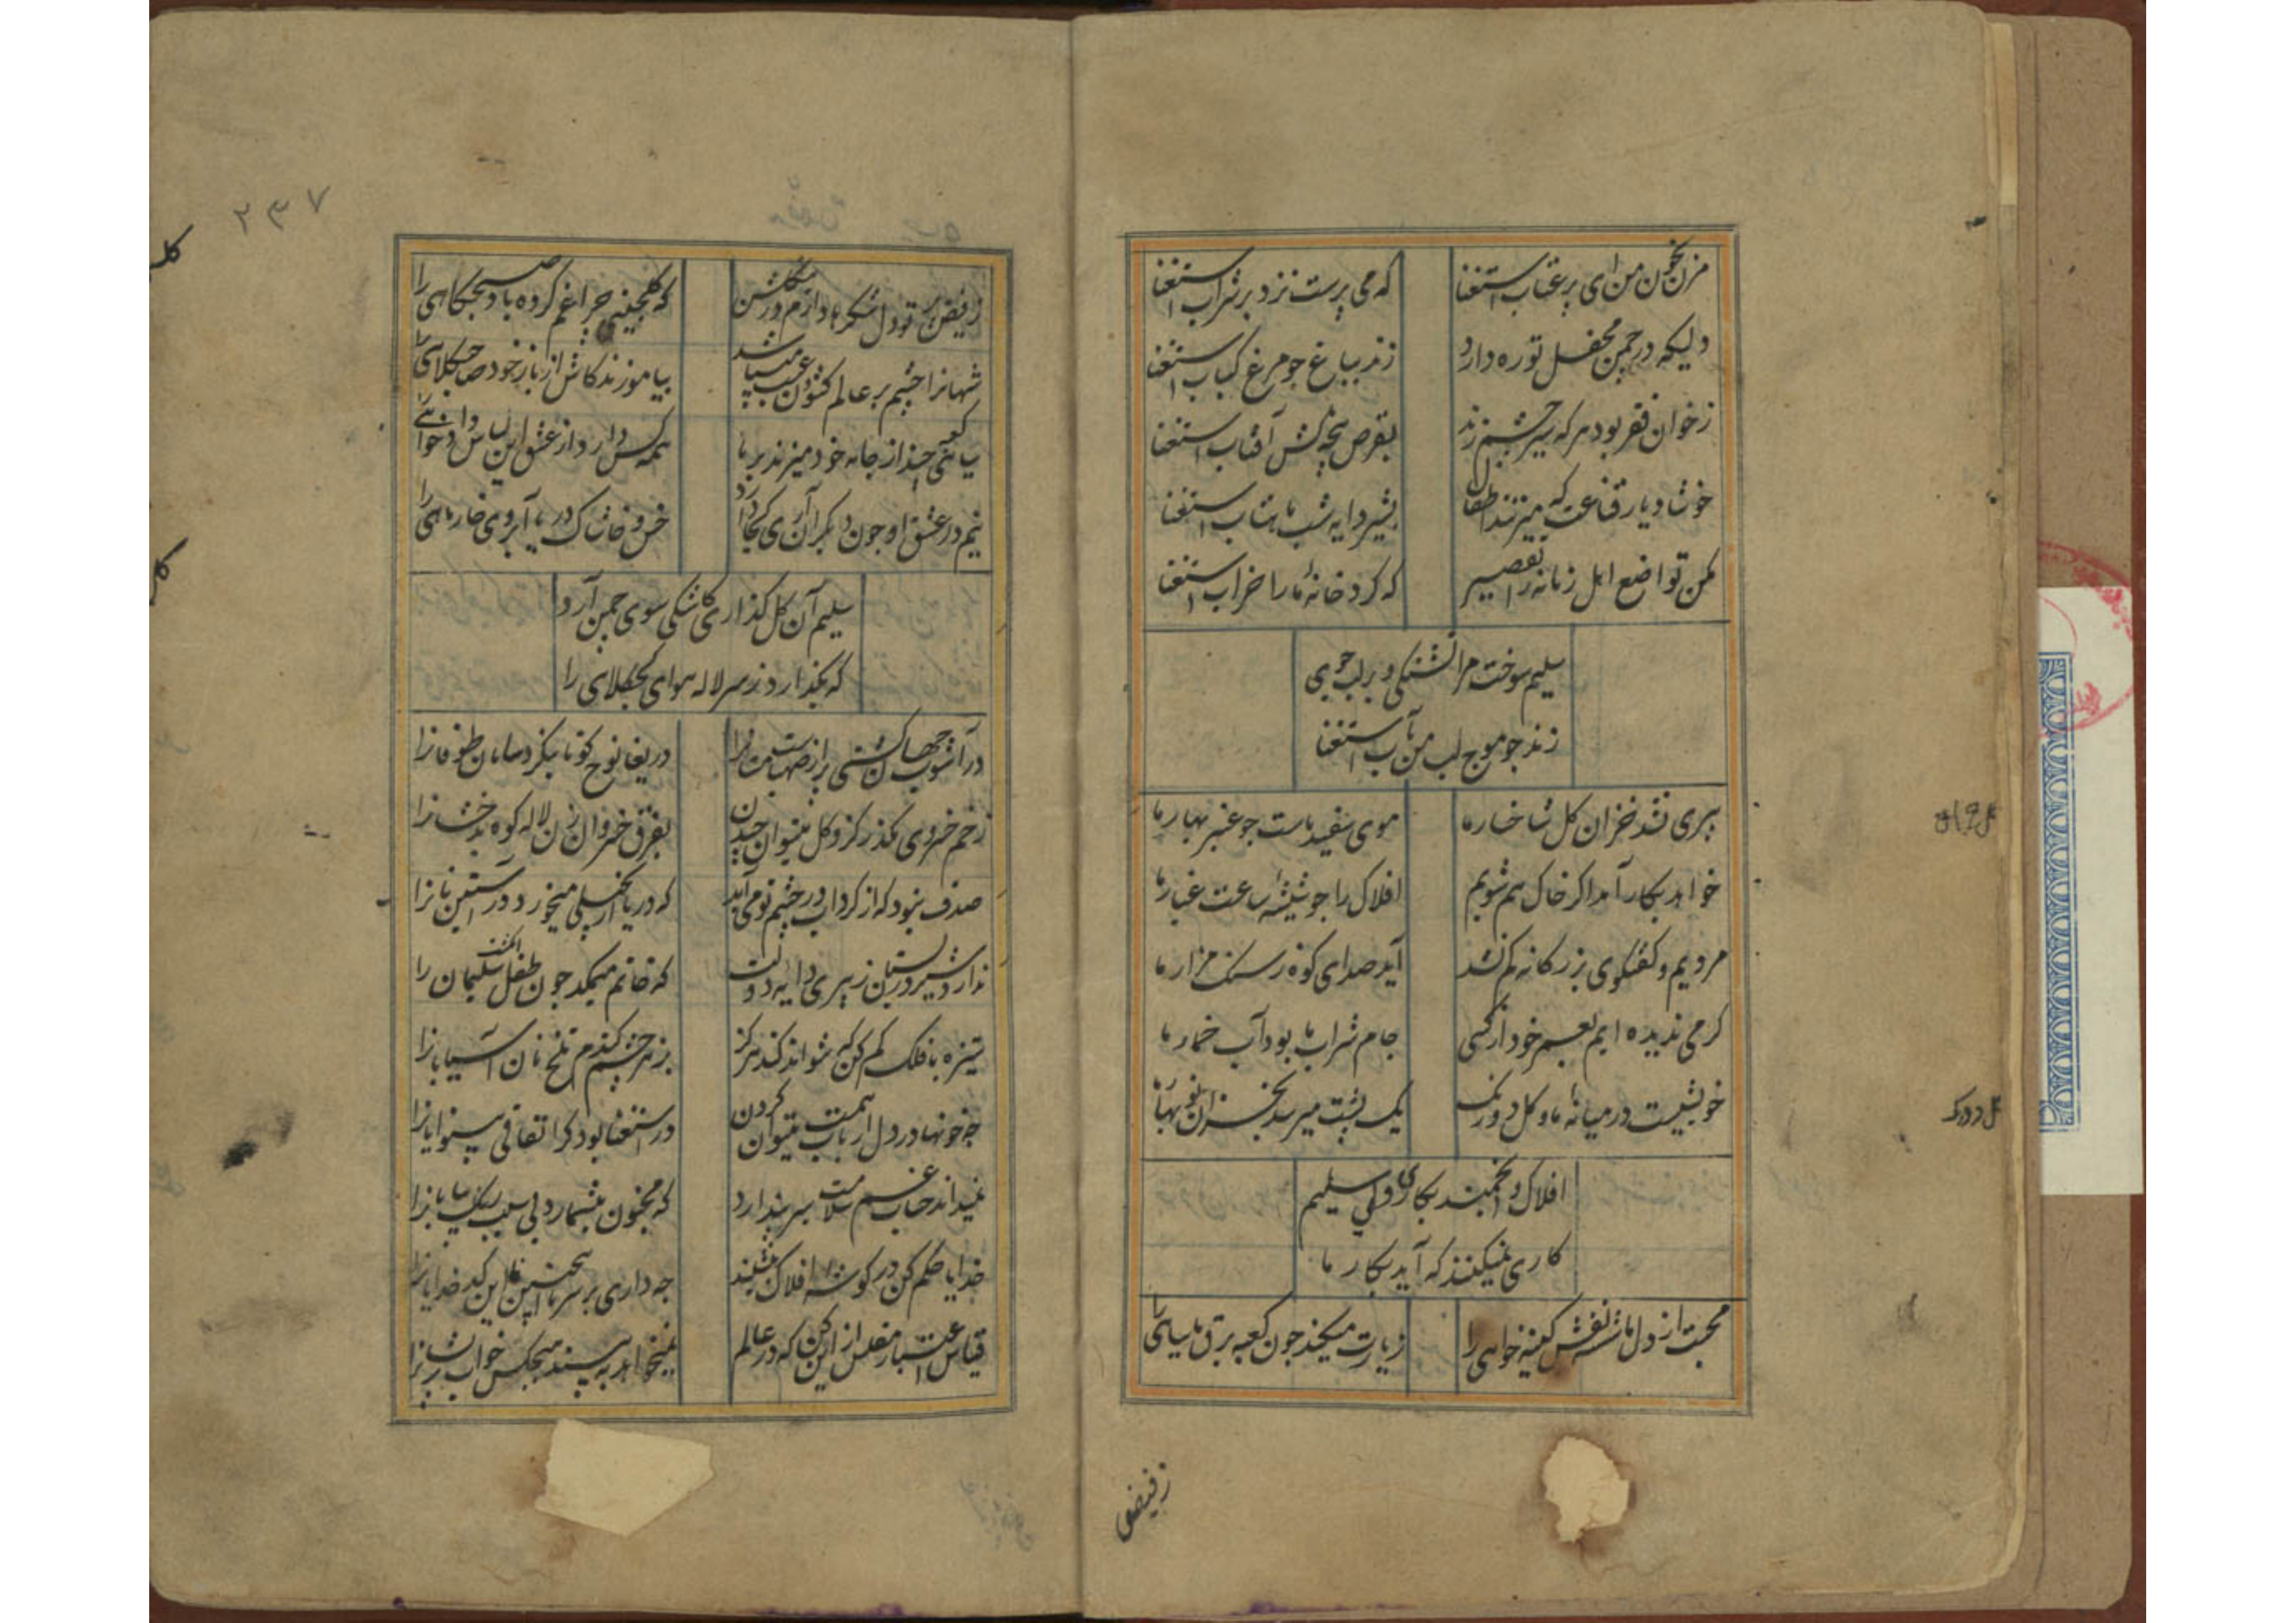 مزن بخون من ای پر عتاب استغنا
که می پرست نزد بر شراب استغنا
دلیکه در چمن محفل تو ره دارد
زند بباغ جو مرغ کباب استغنا
ز خوان فقر بود هر که سیر چشم زند
بقرص پنجه کش آفتاب استغنا
خوشا دیار قناعت که میزنند اطفال
بشیر دایه شب ماهتاب استغنا
مکن تواضع اهل زمانه را تقصیر
که کرد خانهٔ ما را خراب استغنا
سلیم سوخت مرا تشنکی و بر لب جوی
زند جو موج لب من بآب استغنا
پیری فکند خزان کل شاخسار ما
موی سفید ماست جو عنبر بهار ما
خواهد بکار آمد اکر خاک هم شویم
افلاک را جو شیشهٔ ساعت غبار ما
مردیم و کفتکوی بزرکانه کم نشد
آید صدای کوه ز سنک مزار ما
کرمی ندیده ایم بعمر خود از کسی
جام شراب ما بود آب خمار ما
خویشیست در میانهٔ ما و کل دورنک
یک پشت میرسد بخزان نو بهار ما
افلاک و انجمند بکاری ولی سلیم
کاری نمیکنند که آید بکار ما
محبت از دل ما شسته نقش کینه خواهی را
زیارت میکند جون کعبه برق ما سیاهی را
ز فیض
۲۳۷
ز فیض پرتو دل شکرها دارم در کلشن
که کلچینی چراغم کرده باد صبحکاهی را
شهانرا چشم بر عالم کشودن عیب میباشد
بیاموزند کاش از باز خود صاحب کلاهی را
همه کس دارد از عشق این لباس داد خواهی را
نیم در عشق او جون دیکران آری کجا دارد
خس و خاشاک دریا آبروی خار ماهی را
سلیم آن کل کذاری کاشکی سوی چمن آرد
که بکذارد ز سر لاله هوای کجکلاهی را
در آشوب جهان کشتی بر از صهباست مستانرا
دریغا نوح کو تا بنکرد سامان طوفانرا
ز خم خسروی بکذر کزو کل میتوان چیدن
بفرق خسروان زن لالهٔ کوه بدخشانرا
صدف نبود که از کرداب در چشم تو می آید
که دریا از بخیلی میخورد در آستین نانرا
ندارد شیر در پستان ز پیری دایه دولت
که خاتم میمکد جون طفل انکشت سلیمان را
ستیزه با فلک کم کن که نتواند کند هرکز
بزهر چشم کندم تلخ نان آسیابانرا
چه خونها در دل ارباب همت میتوان کردن
در استغنا بود کر اتفاقی بینوایانرا
نمیداند حساب غم سلامت سر بنهد ارد
که مجنون میشمارد بی سبب ریک بیابانرا
خدایا حکم کن در کوشهٔ افلاک بنشیند
جه داری بر سر ما اینچنین این کد خدایانرا
قیاس اعتبار مفلس از این کن که در عالم
نمیخواهد به بیند هیچکس خواب پریشانرا